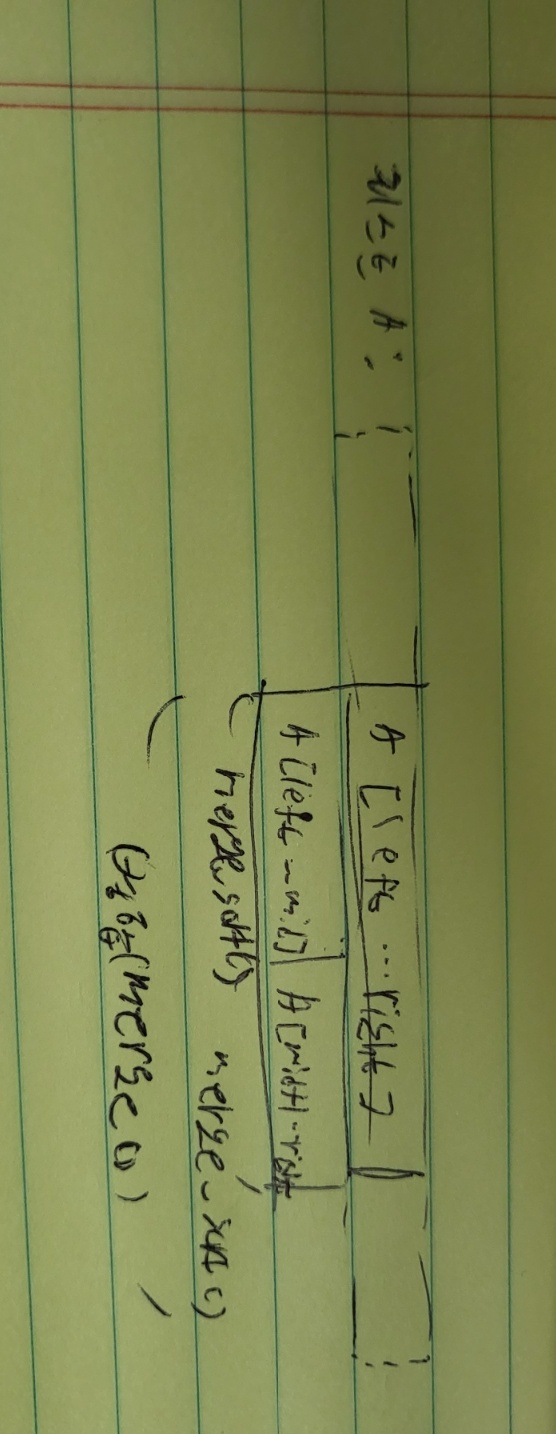 리스트 A :
A [left ... right]
A[left ~ mid] A[mid+1 ~ right
merge_sort() merge_sort()
(merge())